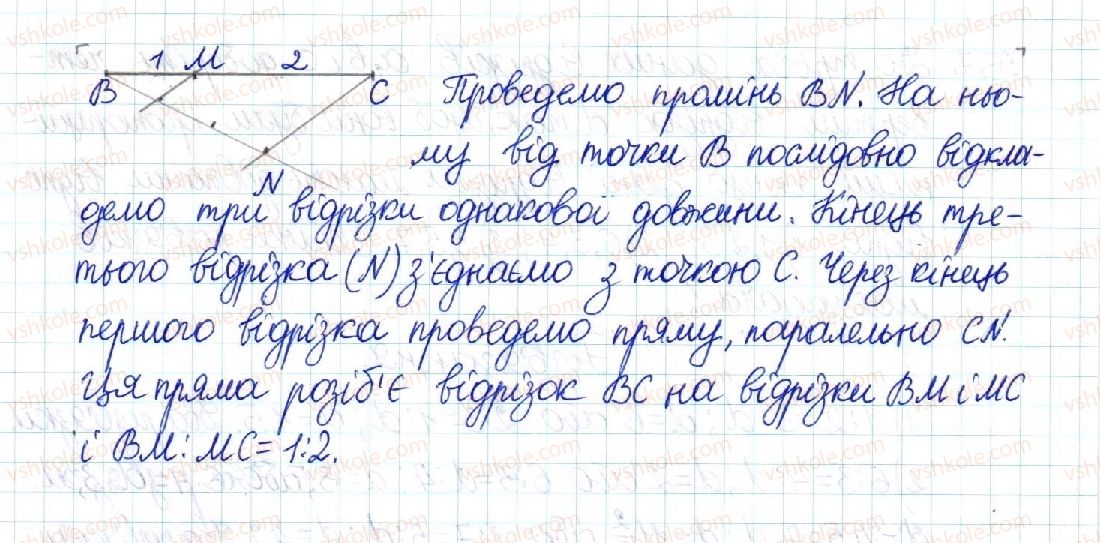 1 M 2
B C Проведемо промінь BN. На ньо-
му від точки B послідовно відкла-
N
демо три відрізки однакової довжини. Кінець тре-
тього відрізка (N) з'єднаємо з точкою C. Через кінець
першого відрізка проведемо пряму, паралельно CN.
Ця пряма розіб'є відрізок BC на відрізки BM і MC
і BM : MC = 1:2.